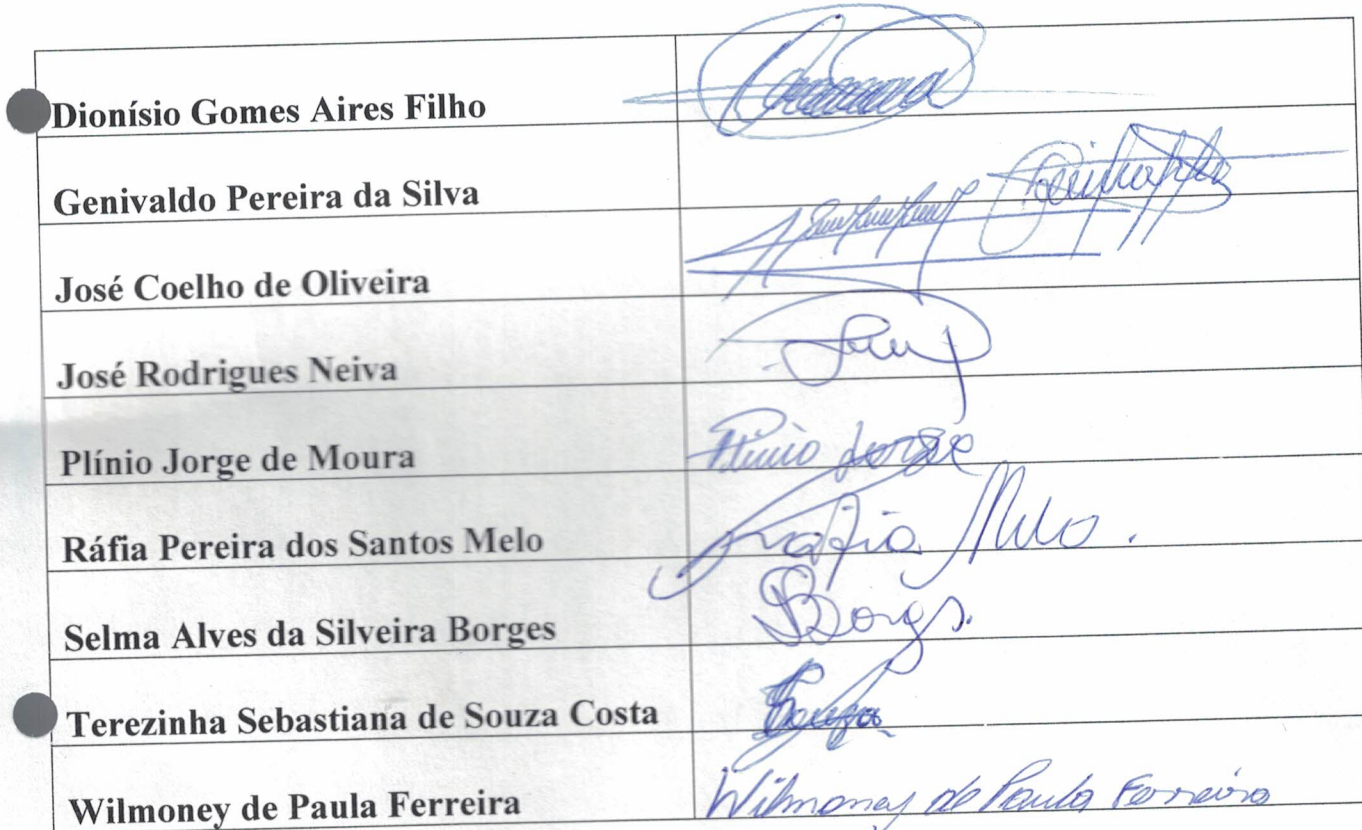 Dionísio Gomes Aires Filho
Genivaldo Pereira da Silva
José Coelho de Oliveira
José Rodrigues Neiva
Plínio Jorge de Moura Plínio Jorge
Ráfia Pereira dos Santos Melo Ráfia Melo.
Selma Alves da Silveira Borges SBorges.
Terezinha Sebastiana de Souza Costa
Wilmoney de Paula Ferreira Wilmoney de Paula Ferreira